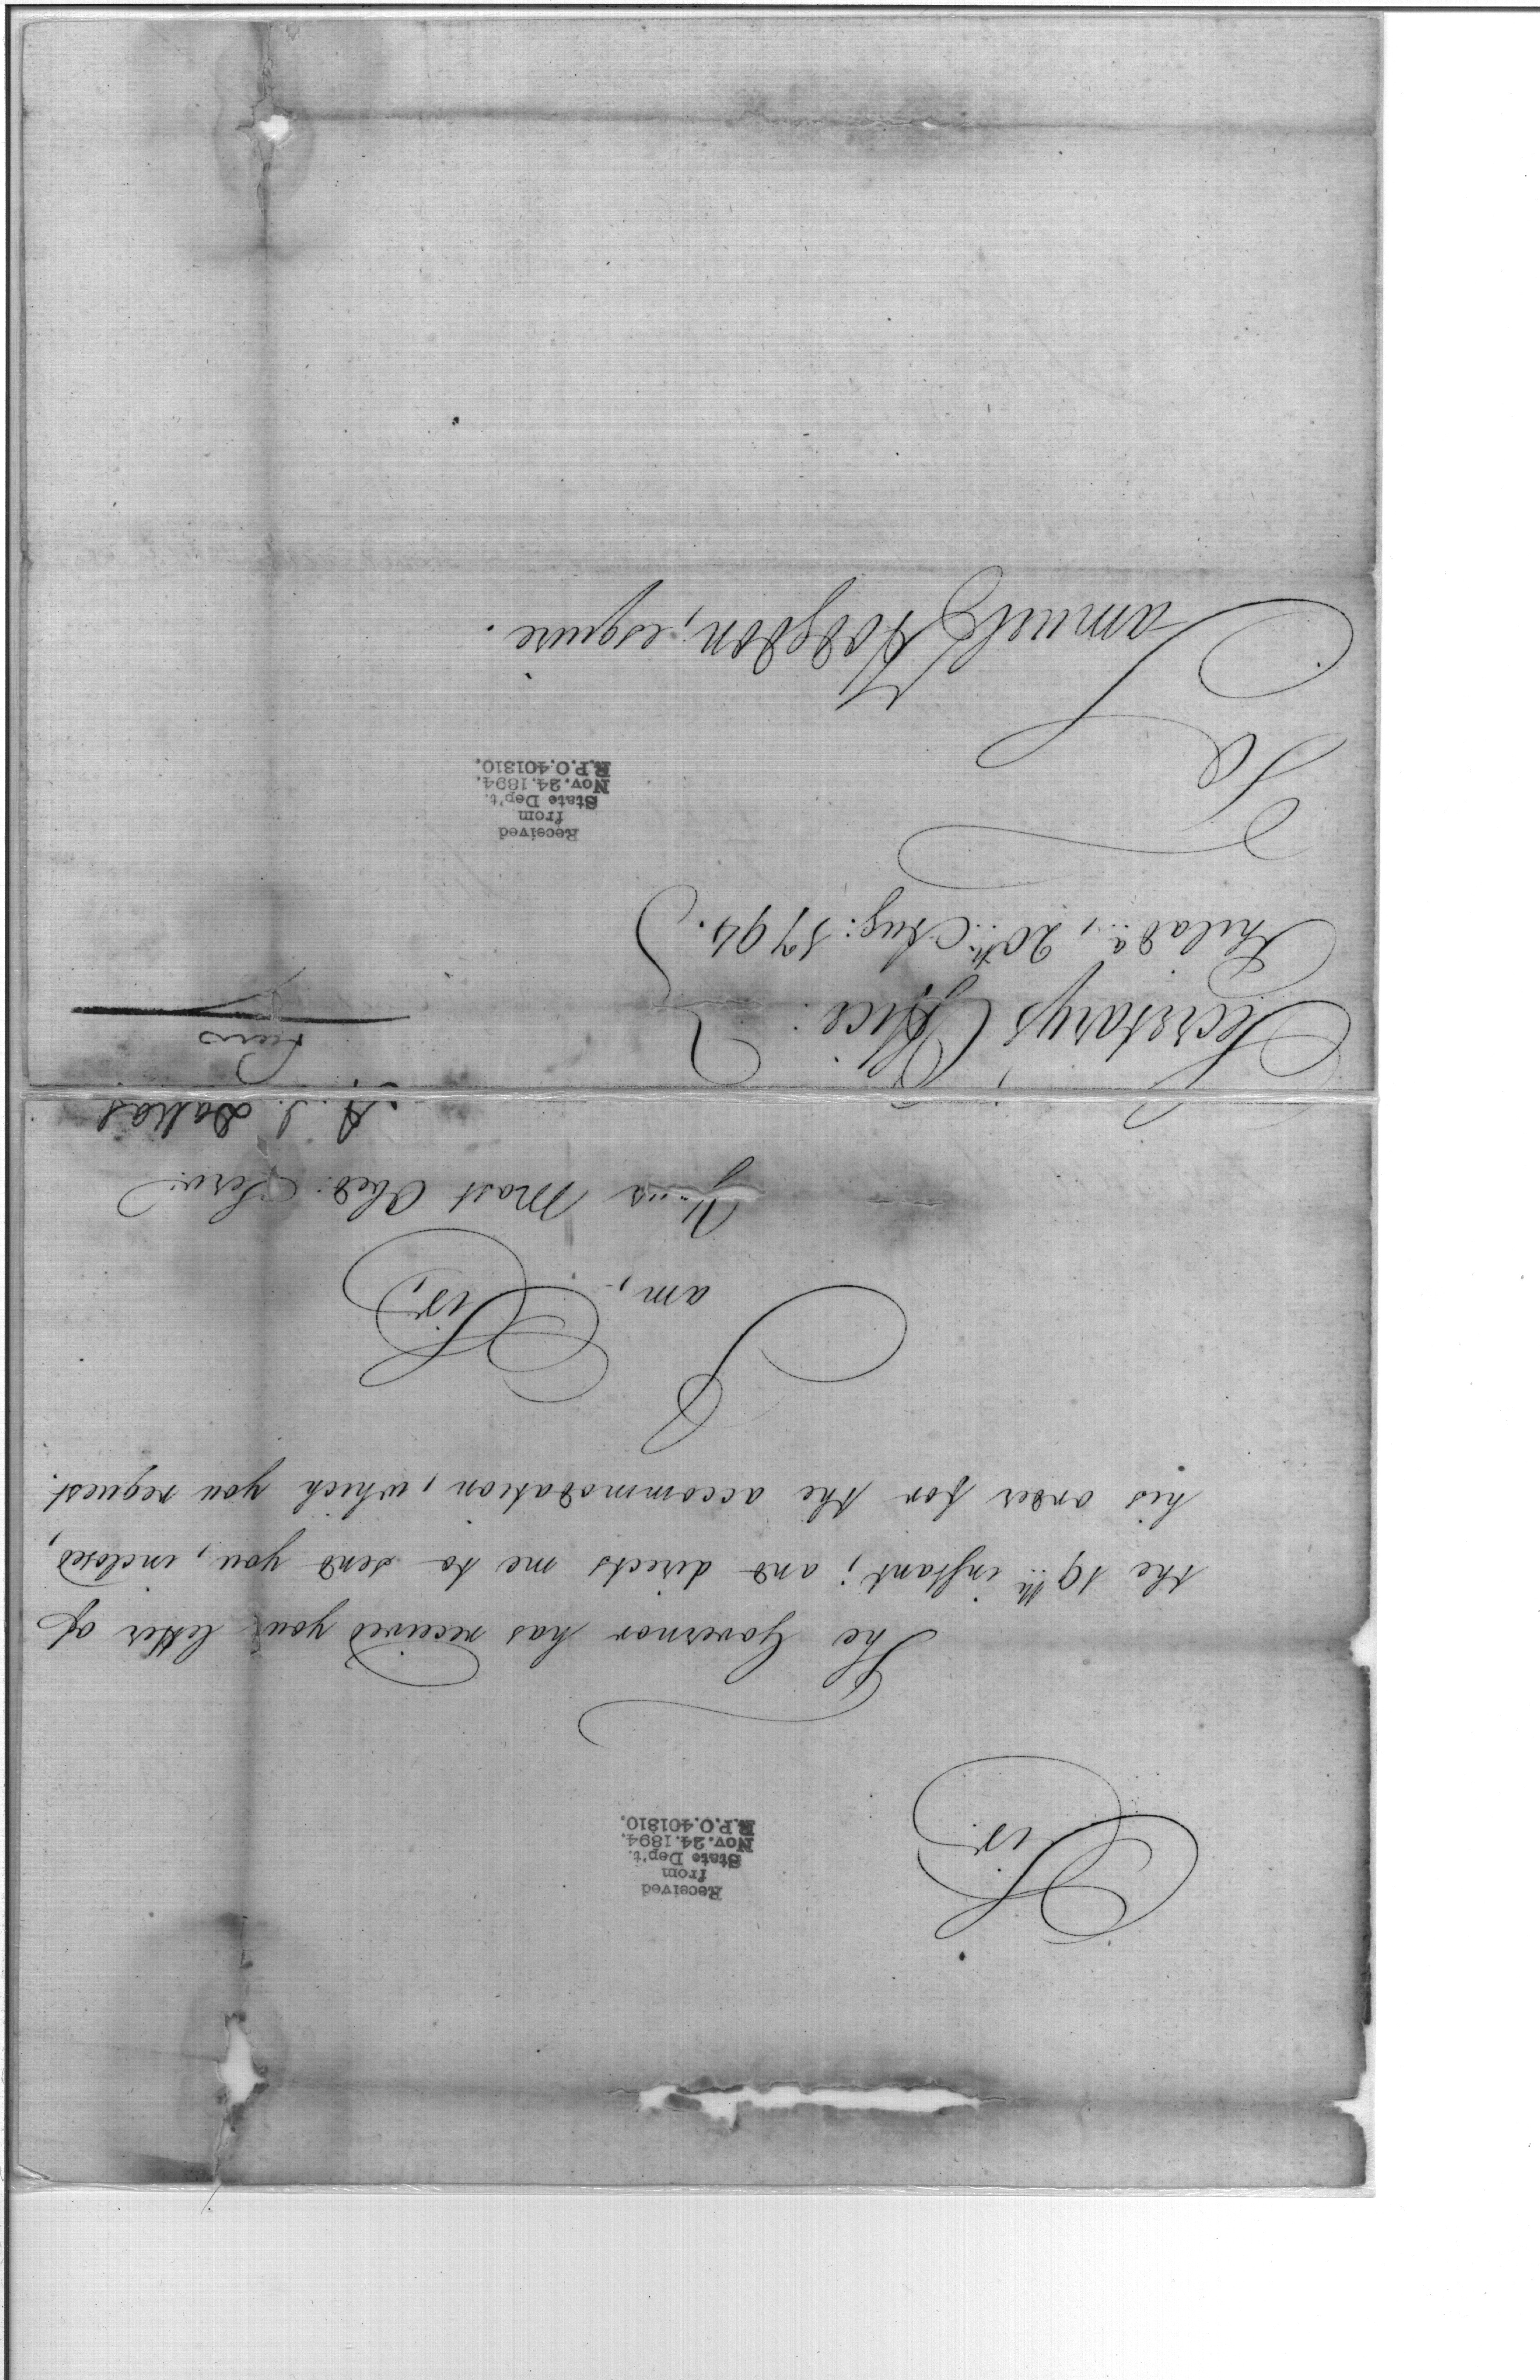 Sir,
Received
from
State Dep't.
Nov. 24. 1894.
R.P.O. 401810.
The Governor has received your letter of
the 19th instant; and directs me to send you, inclosed,
his order for the accommodation, which you request.
I am, Sir,
Your Most Obed. Serv.
A. J. Dallas
Secretary's Office.
Philada., 20th Aug: 1794.
Received
from
State Dep't.
Nov. 24. 1894.
R.P.O. 401810.
To
Samuel Hodgdon, esquire.